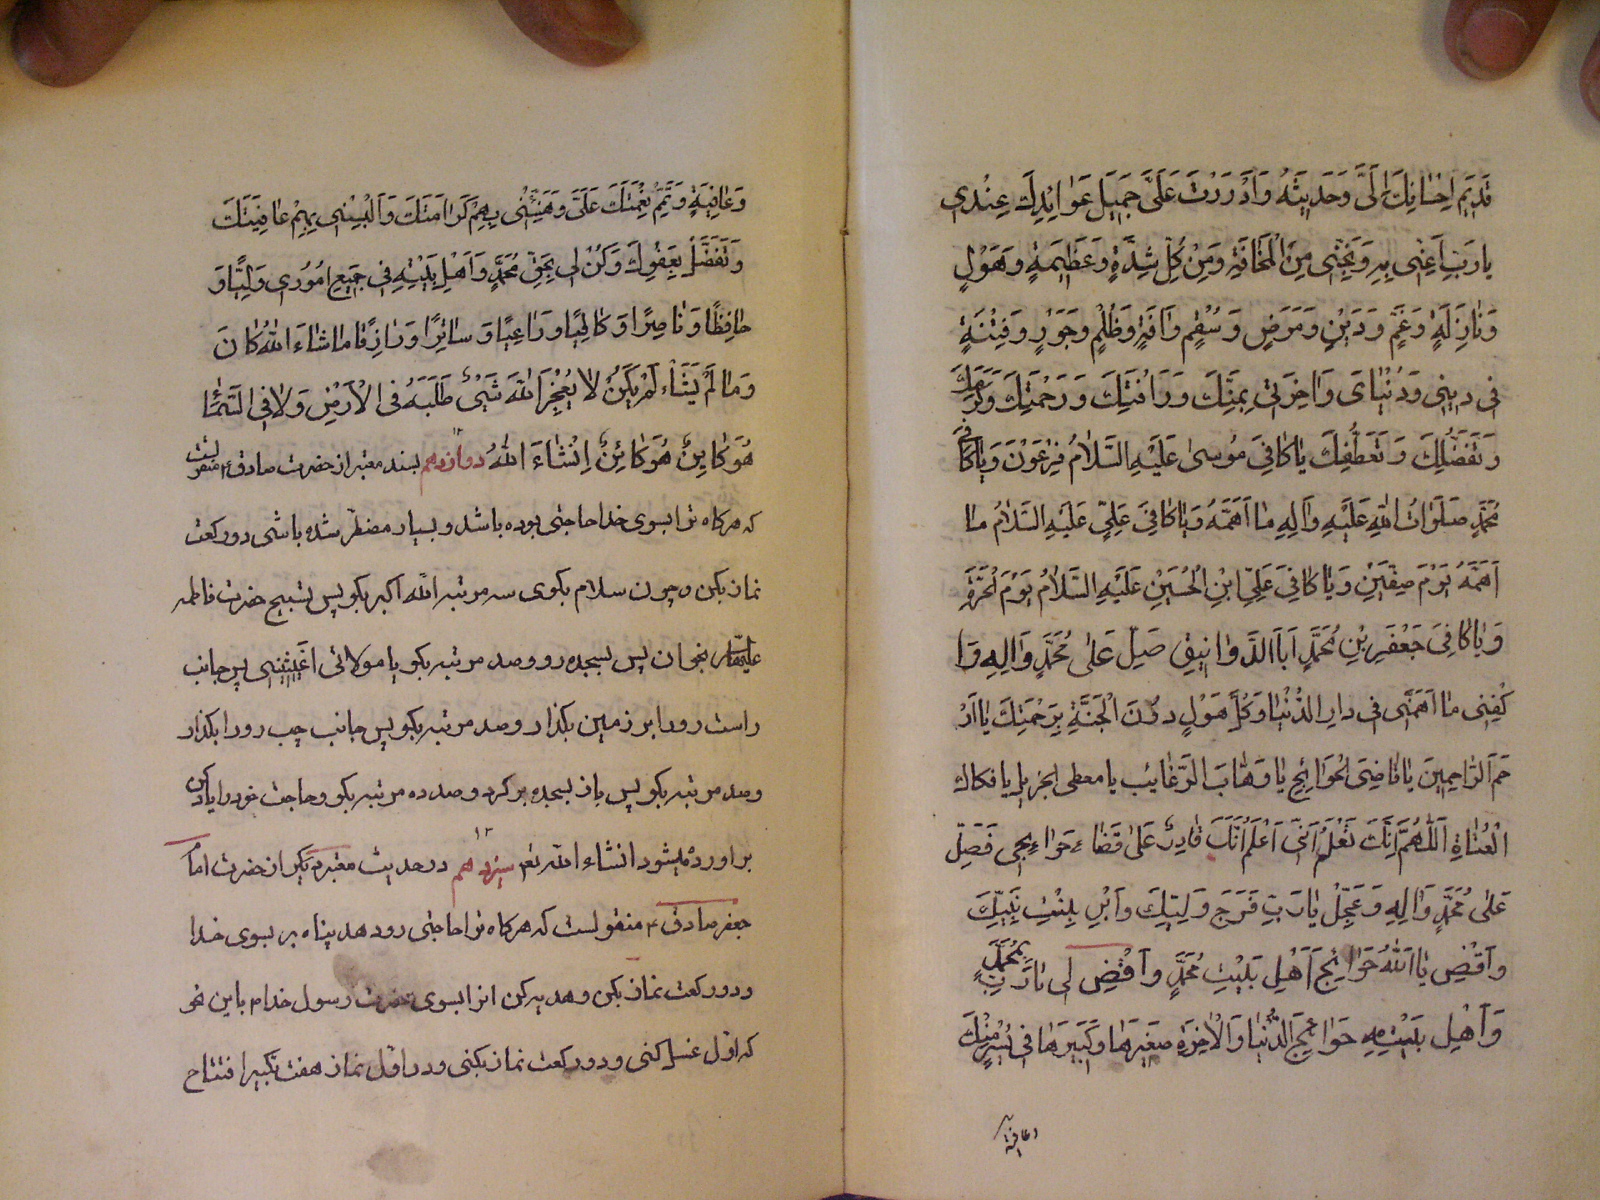 قَدِیَم اِحْسَانِكَ اِلَیَّ وَحَدیثَهُ وَاَدْرَرْتَ عَلَیَّ جَمیَلَ عَوَائِدِكَ عِنْدی
یا رَبِّ اَعِنّی بِهِ وَنَجِّنی مِنَ الْمَخافَةِ وَمِنْ كُلِّ شِدَّةٍ وَعَظیمَةٍ وَهَوْلٍ
وَنازِلَةٍ وَغَمٍّ وَدَیْنٍ وَمَرَضٍ وَسُقْمٍ وَافَةٍ وَظُلْمٍ وَجَوْرٍ وَفِتْنَةٍ
فی دینی وَدُنْیایَ وَاخِرَتی بِمَنِّكَ وَرَاْفَتِكَ وَرَحْمَتِكَ وَكَرَمِكَ
وَتَفَضُّلِكَ وَتَعَطُّفِكَ یا كافِیَ مُوسی عَلَیْهِ السَّلامُ فِرْعَوْنَ وَیا كافِیَ
مُحَمَّدٍ صَلَواتُ اللهِ عَلَیْهِ وَآلِهِ ما اَهَمَّهُ وَیا كافِیَ عَلِیٍّ عَلَیْهِ السَّلامُ ما
اَهَمَّهُ یَوْمَ صِفّینَ وَیا كافِیَ عَلِیِّ ابْنِ الْحُسَیْنِ عَلَیْهِ السَّلامُ یَوْمَ الْحَرَّةِ
وَیا كافِیَ جَعْفَرِ بْنِ مُحَمَّدٍ اَبَا الدَّوانیقِ صَلِّ عَلی مُحَمَّدٍ وَالِهِ وَا
كْفِنی ما اَهَمَّنی فی دارِ الدُّنْیا وَكُلَّ هَوْلٍ دوُنَ الْجَنَّةِ بِرَحْمَتِكَ یا اَرْ
حَمَ الرّاحِمینَ یا قاضِیَ الْحَوَائِجِ یا وَهّابَ الرَّغایِبِ یا معطی الجزیل یا فكاك
الْعُناةِ اَللّهُمَّ اِنَّكَ تَعْلَمُ اَنّی اَعْلَمُ اَنَّكَ قادِرٌ عَلی قَضاءِ حَوَاءِیجی فَصَلِّ
عَلی مُحَمَّدٍ وَالِهِ وَعَجِّلْ یا رَبِّ فَرَجَ وَلِیِّكَ وَابْنِ بِنْتِ نَبِیِّكَ
وَاقْضِ یا اَللهُ حَوَائِجَ اَهْلِ بَیْتِ مُحَمَّدٍ وَاقْضِ لی یا رَبِّ بِمُحَمَّدٍ
وَاَهْلِ بَیْتِهِ حَوَائِجَ الدُّنْیا وَالْاخِرَةِ صَغیرَها وَكَبیَرَها فی یُسْرٍ مِنْكَ
وعافیة
وَعافِیَةٍ وَتَمِّمْ نِعْمَتَكَ عَلَیَّ وَهَنِّئْنی بِهِمْ كَرامَتَكَ وَاَلْبِسْنی بِهِمْ عافِیَتَكَ
وَتَفَضَّلْ بِعَفْوِكَ وَكُنْ لی بِحَقِّ مُحَمَّدٍ وَاَهْلِ بَیْتِهِ فی جَمیعِ اُمُوری وَلِیًّا وَ
حافِظًا وَناصِرًا وَكالِیًا وَراعِیًا وَساتِرًا وَرازِقًا ما شاءَ اللهُ كانَ
وَما لَمْ یَشَاْء لَمْ یَكُنْ لا یُعْجِزُ اللهَ شَیْیءٌ طَلَبَهُ فِی الْاَرْضِ وَلا فِی السَّماءِ
هُوَ كایِنٌ هُوَ كائِنٌ اِنْشاءَ اللهُ دوازدهم بسند معتبر از حضرت صادق ع منقولست
كه هركاه ترا بسوی خدا حاجتی بوده باشد و بسیار مضطر شده باشی دو ركعت
نماز بكن و چون سلام بكوی سه مرتبه الله اكبر بكو پس تسبیح حضرت فاطمه
علیها السلام بخوان پس بسجده رو و صد مرتبه بكو یا مولاتی اَغیثینی پس جانب
راست رو را بر زمین بكذار و صد مرتبه بكو پس جانب چپ رو را بكذار
و صد مرتبه بكو پس باز بسجده بركرد و صد ده مرتبه بكو و حاجت خود را یاد كن
براورده میشود انشاء الله تعم سیزدهم ۱۳ در حدیث معتبر دیكر از حضرت امام
جعفر صادق ع منقولست كه هركاه ترا حاجتی رو دهد پناه بر بسوی خدا
و دو ركعت نماز بكن و هدیه كن انرا بسوی حضرت رسول خدا م باین نحو
كه اوّل غسل كنی و دو ركعت نماز بكنی و در اوّل نماز هفت تكبیر افتتاح